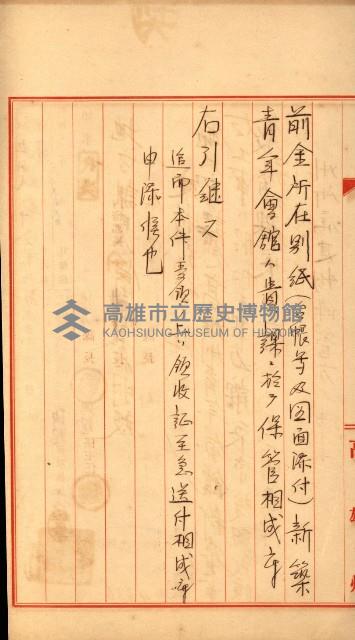 前金所在別紙(台帳等及図面添付)新築
青年會館ハ貴課ニ於テ保管相成度
右引継ス
追而本件受領ノ上ハ領收証至急送付相成度
申添候也
高雄州
高雄市立歷史博物館
KAOHSIUNG MUSEUM OF HISTORY